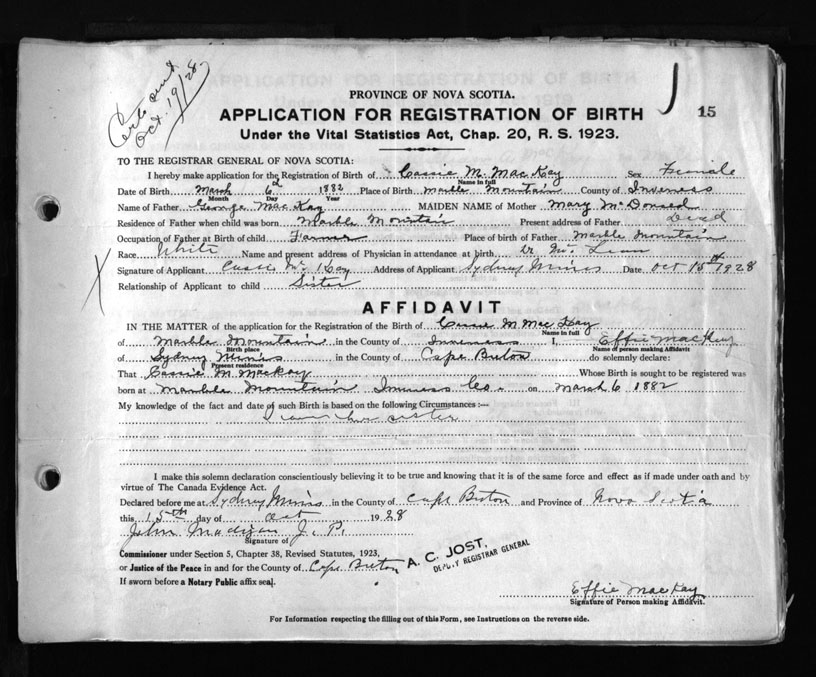 Certs sent
Oct. 19/28
15
PROVINCE OF NOVA SCOTIA.
APPLICATION FOR REGISTRATION OF BIRTH
Under the Vital Statistics Act, Chap. 20, R. S. 1923.
TO THE REGISTRAR GENERAL OF NOVA SCOTIA:
I hereby make application for the Registration of Birth of Cassie M. MacKay Sex Female
Name in full
Date of Birth March 6th 1882 Place of Birth Marble Mountain County of Inverness
Month Day Year
Name of Father George MacKay MAIDEN NAME of Mother Mary
Residence of Father when child was born Marble Mountain Present address of Father Dead
Occupation of Father at Birth of child Farmer Place of birth of Father Marble Mountain
Race White Name and present address of Physician in attendance at birth Dr Mc Lean
Signature of Applicant Cassie McKay Address of Applicant Sydney Mines Date Oct 15th 1928
Relationship of Applicant to child Sister
AFFIDAVIT
IN THE MATTER of the application for the Registration of the Birth of Cassie M MacKay
Name in full
of Marble Mountain in the County of Inverness I, Effie MacKay
Birth place Name of person making Affidavit
of Sydney Mines in the County of Cape Breton do solemnly declare:
Present residence
That Cassie M. MacKay Whose Birth is sought to be registered was
born at Marble Mountain Inverness Co. on March 6 1882
My knowledge of the fact and date of such Birth is based on the following Circumstances:—
I am her sister
I make this solemn declaration conscientiously believing it to be true and knowing that it is of the same force and effect as if made under oath and by
virtue of The Canada Evidence Act.
Declared before me at Sydney Mines in the County of Cape Breton and Province of Nova Scotia
this 15th day of Oct 1928
John Madigan J. P.
Signature of
Commissioner under Section 5, Chapter 38, Revised Statutes, 1923,
or Justice of the Peace in and for the County of Cape Breton
A. C. JOST,
DEPUTY REGISTRAR GENERAL
If sworn before a Notary Public affix seal.
Effie MacKay
Signature of Person making Affidavit.
For Information respecting the filling out of this Form, see Instructions on the reverse side.